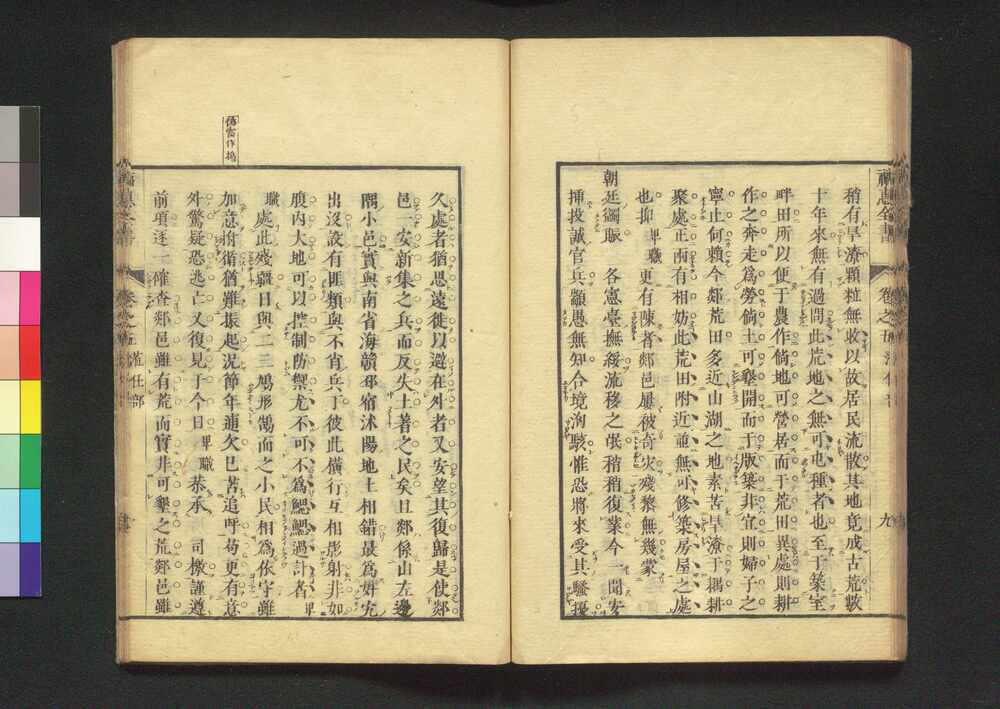 稍有旱潦顆粒無收以故居民流散其地竟成古荒數
十年來無有過問此荒地之無可屯種者也至于築室
畊田所以便于農作倘地可營居而于荒田異處則耕
作之奔走爲勞倘土可墾開而于版築非宜則婦子之
寧止何賴今郯荒田多近山湖之地素苦旱潦于耦耕
聚處正兩有相妨此荒田附近並無可修築房屋之處
也抑卑職更有陳者郯邑屢被奇灾殘黎無幾蒙
朝廷蠲賑各憲臺撫綏流移之氓稍稍復業今一聞安
揷投誠官兵顓愚無知合境洶駭惟恐將來受其騷擾
福惠全書 卷之五 蒞任部 九
久處者猶思遠徙以避在外者又安望其復歸是使郯
邑一安新集之兵而反失土著之民矣且郯係山左邊
隅小邑實與南省海贛邳宿沭陽地土相錯最爲奸宄
出沒設有匪類與不肖兵丁彼此橫行互相影射非如
腹內大地可以控制防禦尤不可不爲鰓鰓過計者卑
職處此殘疆日與二三鳩形鵠面之小民相爲依守雖
加意拊循猶難振起況節年逋欠已苦追呼苟更有意
外驚疑恐逃亡又復見于今日卑職恭承司檄謹遵
前項逐一確查郯邑雖有荒而實非可墾之荒郯邑雖
福惠全書 卷之五 蒞任部